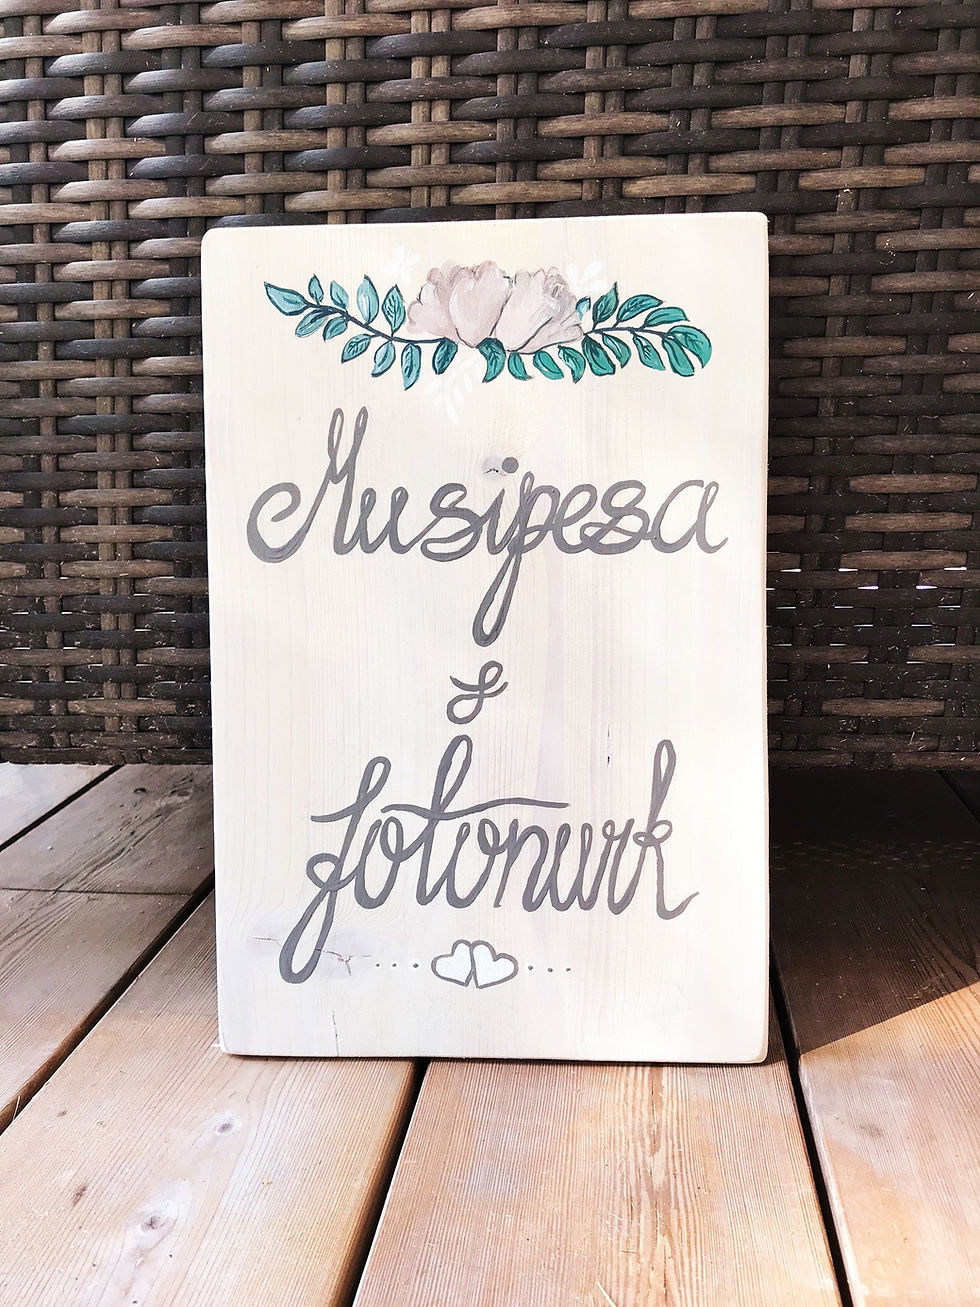 Musipesa
&
fotonurk